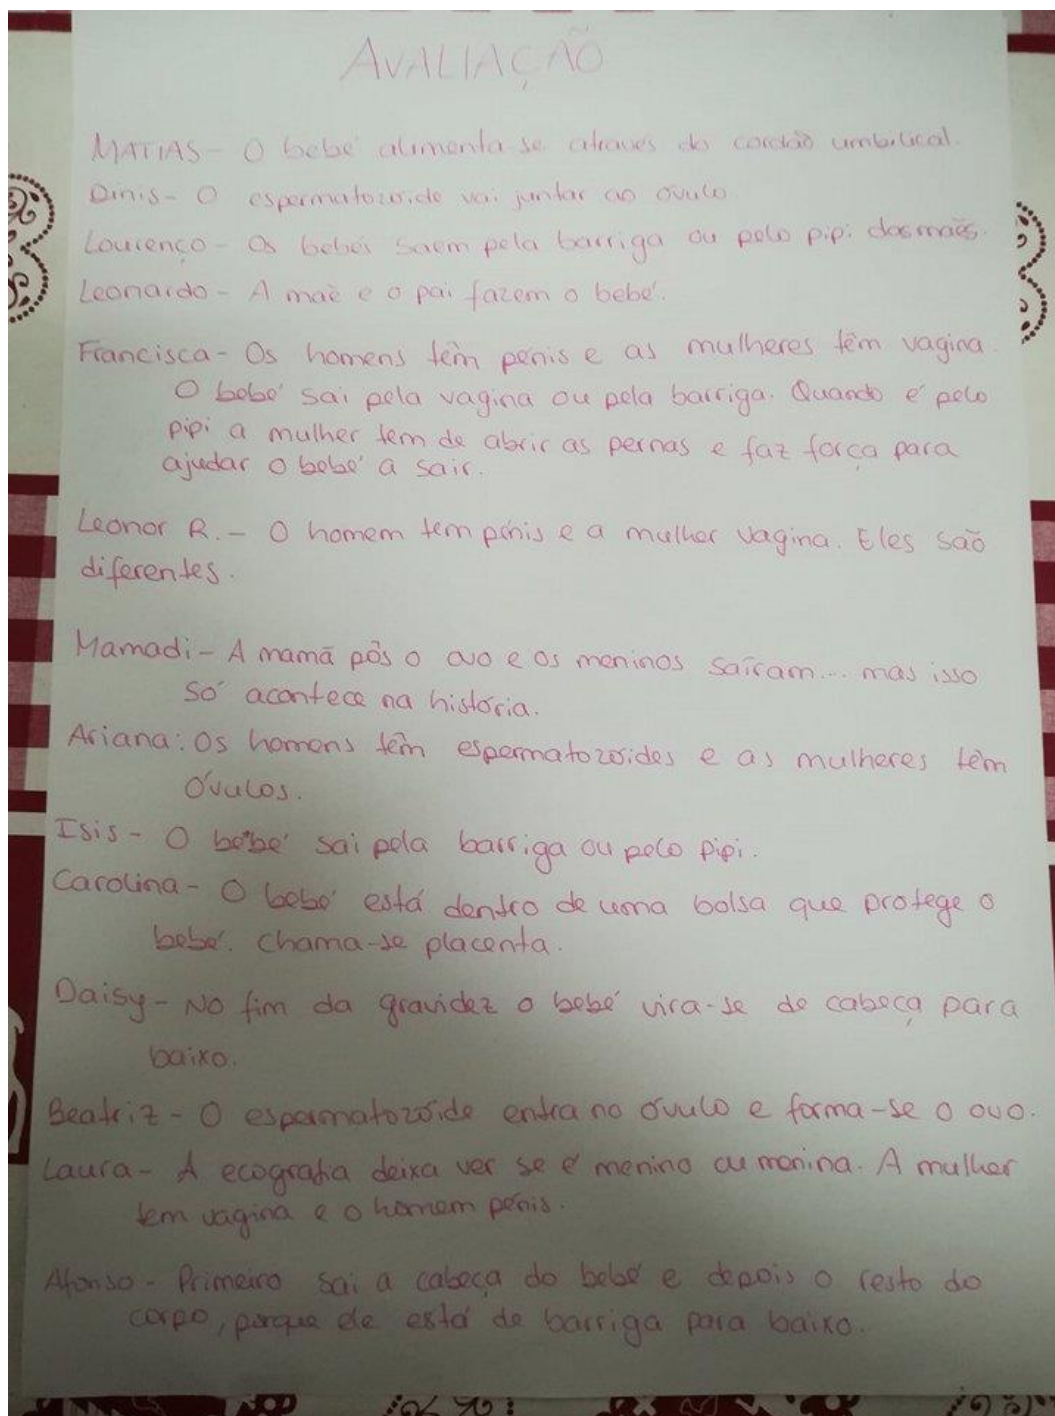 AVALIAÇÃO
MATIAS - O bebé alimenta-se através do cordão umbilical.
Dinis - O espermatozoide vai juntar ao óvulo.
Lourenço - Os bebés saem pela barriga ou pelo pipi das mães.
Leonardo - A mãe e o pai fazem o bebé.
Francisca - Os homens têm pénis e as mulheres têm vagina.
O bebé sai pela vagina ou pela barriga. Quando é pelo
pipi a mulher tem de abrir as pernas e faz força para
ajudar o bebé a sair.
Leonor R. - O homem tem pénis e a mulher vagina. Eles são
diferentes.
Mamadi - A mamã pôs o ovo e os meninos saíram... mas isso
só acontece na história.
Ariana: Os homens têm espermatozoides e as mulheres têm
óvulos.
Isis - O bebé sai pela barriga ou pelo pipi.
Carolina - O bebé está dentro de uma bolsa que protege o
bebé. Chama-se placenta.
Daisy - No fim da gravidez o bebé vira-se de cabeça para
baixo.
Beatriz - O espermatozóide entra no óvulo e forma-se o ovo.
Laura - A ecografia deixa ver se é menino ou menina. A mulher
tem vagina e o homem pénis.
Afonso - Primeiro sai a cabeça do bebé e depois o resto do
corpo, porque ele está de barriga para baixo.